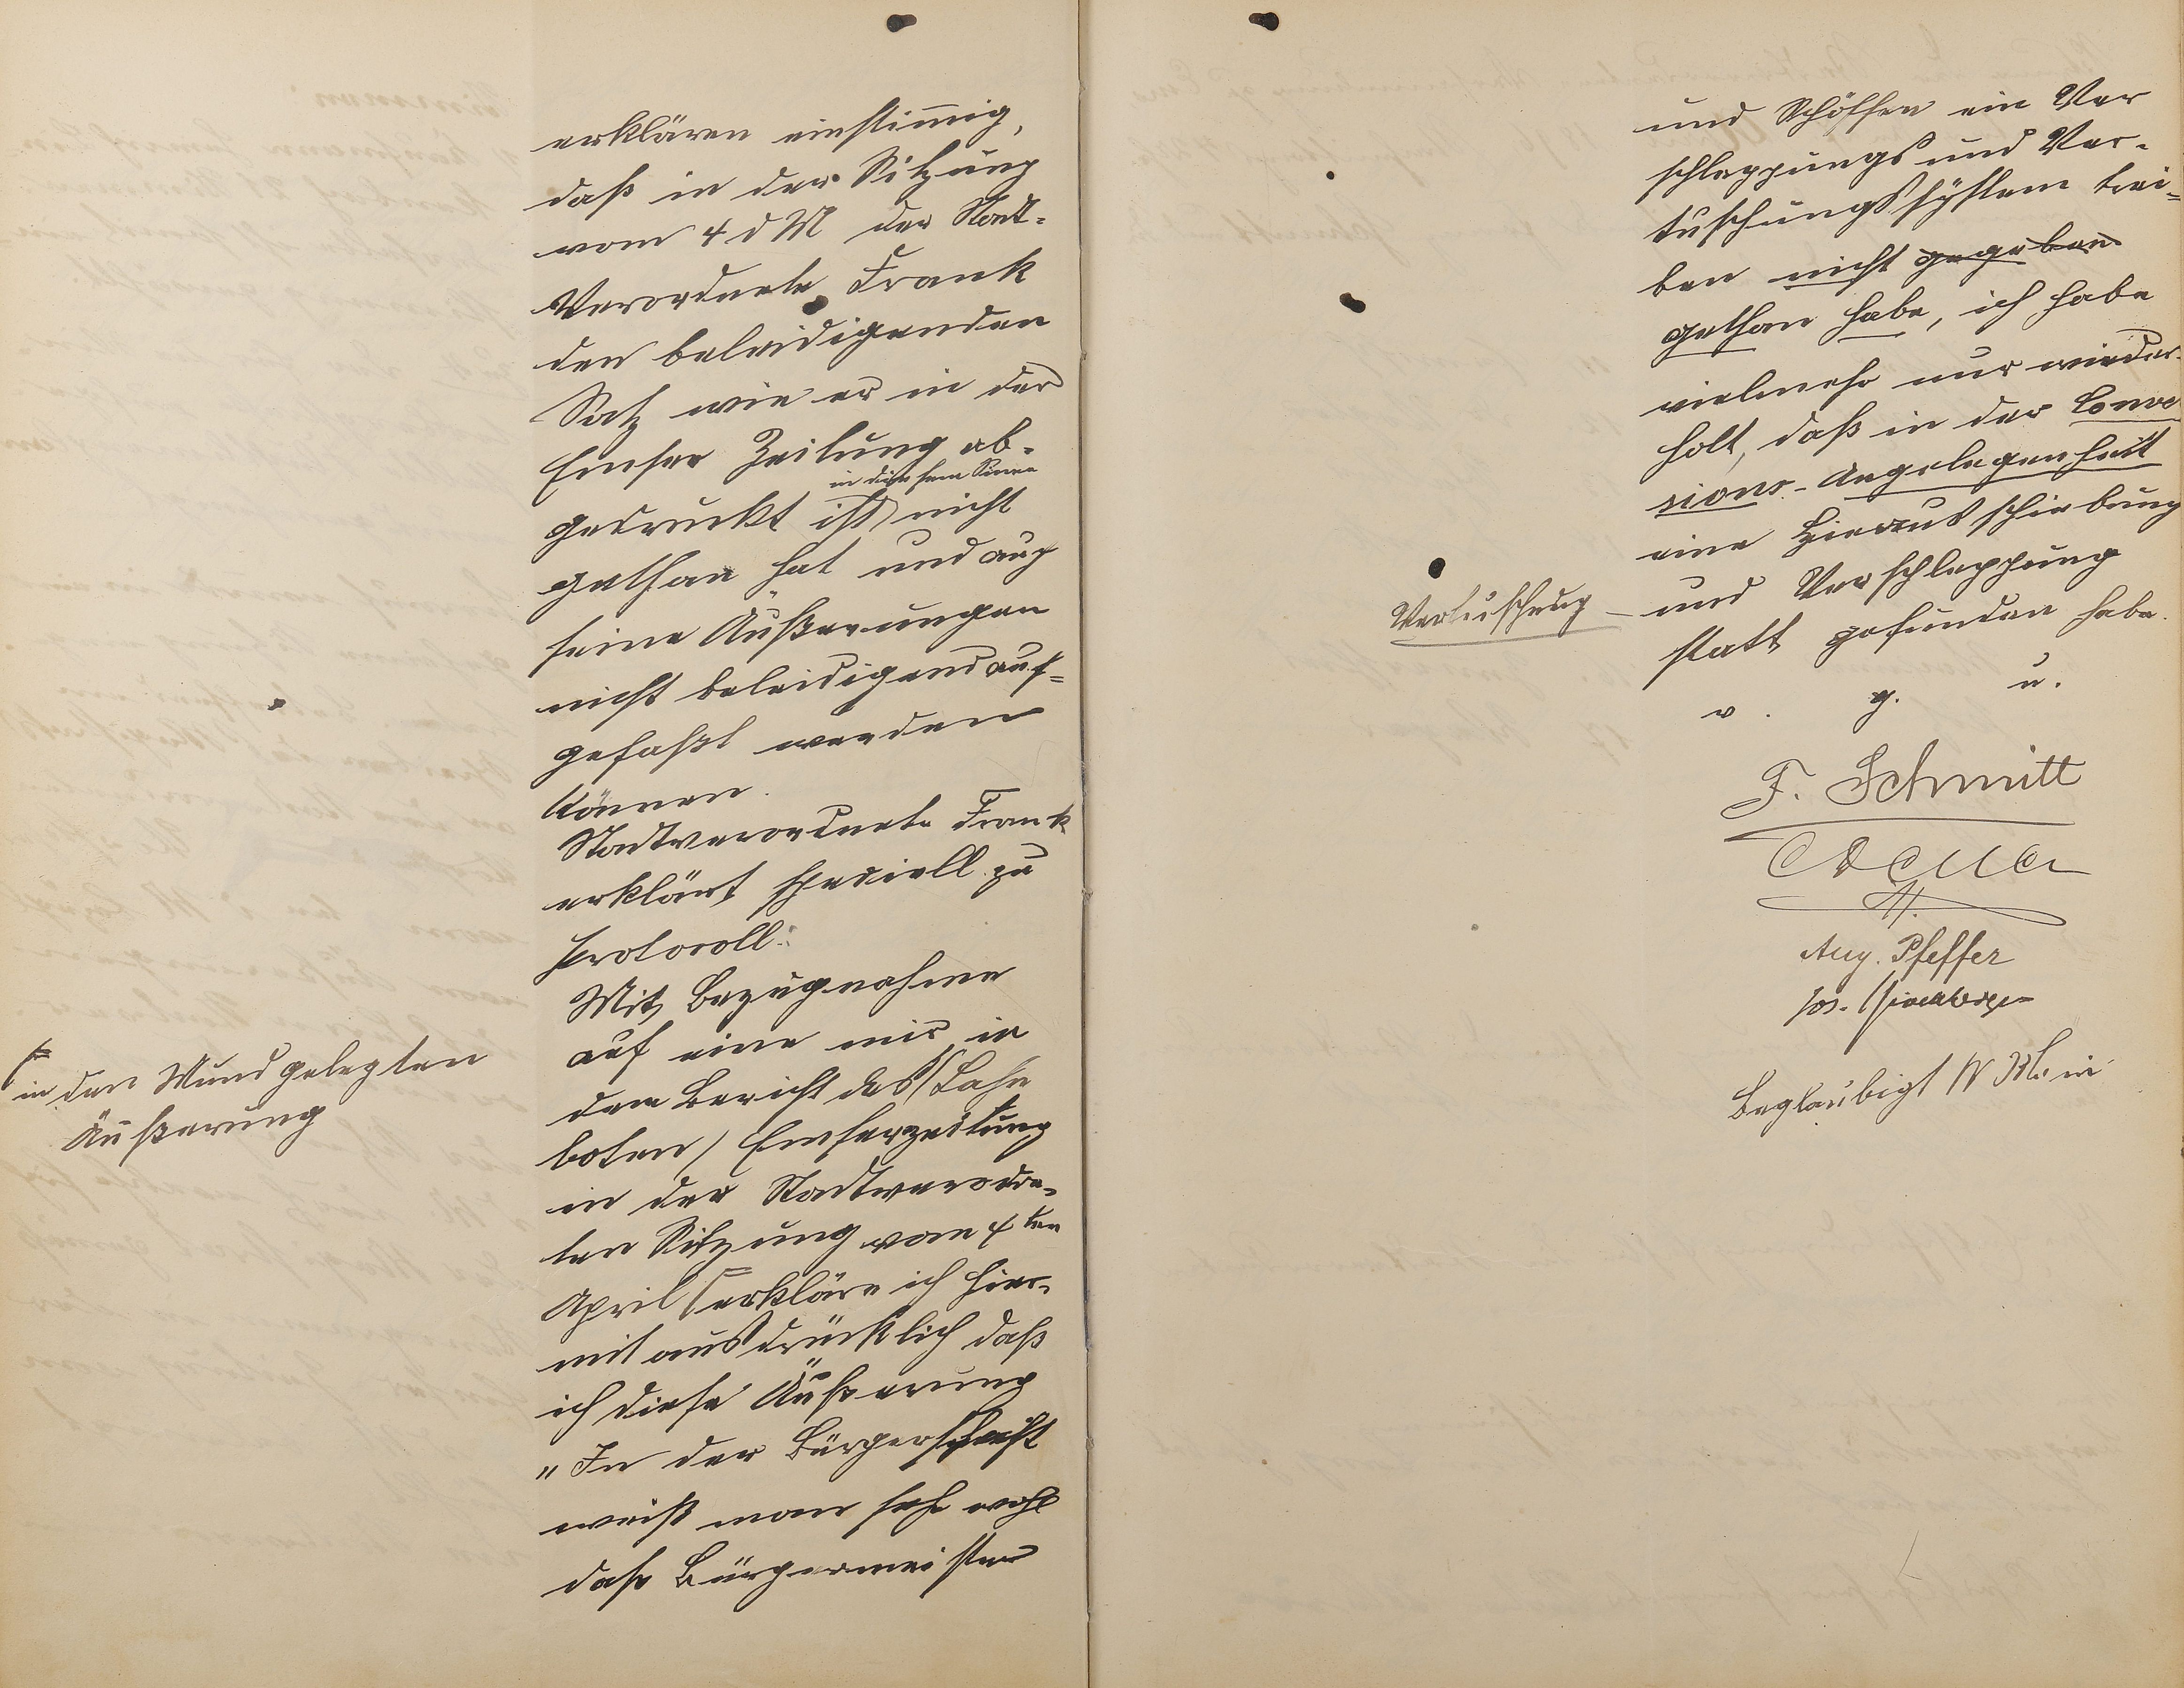 erklären einstimmig,
daß in der Sitzung
vom 4 d M der Stadt-
Verordnete Frank
den beleidigenden
Satz wie er in der
Emser Zeitung ab-
in diesem Sinne
gedruckt ist nicht
gethan hat und auch
seine Äußerungen
nicht beleidigend auf=
gefaßt werden
können.
Stadtverordnete Frank
erklärt speciell zu
Protocoll:
Mit Bezugnahme
auf eine mir in
dem Bericht des Lahn
boten / Emserzeitung
in der Stadtverordne-
ten Sitzung vom 4ten
April erkläre ich hier-
mit ausdrücklich daß
ich diese Äußerung
"In der Bürgerschaft
weiß man sehr wohl
daß Bürgermeister
in den Mund gelegten
Äußerung
und Schöffen ein Ver
schleppungs und Ver-
tuschungssystem trei=
ben nicht gegeben
gethan habe, ich habe
vielmehr nur wieder-
holt, daß in der Conve
sions-Angelegenheit
eine Hinausschiebung
Vertuschung
und Verschleppung
statt gefunden habe.
v. g. u.
F. Schmitt
Aug. Pfeffer
Jos.
Beglaubigt